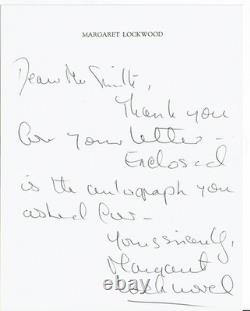 MARGARET LOCKWOOD
Dear Mr Smith,
Thank you
for your letter -
Enclosed
is the autograph you
asked for -
Yours sincerely,
Margaret
Lockwood
www.ebaze.com